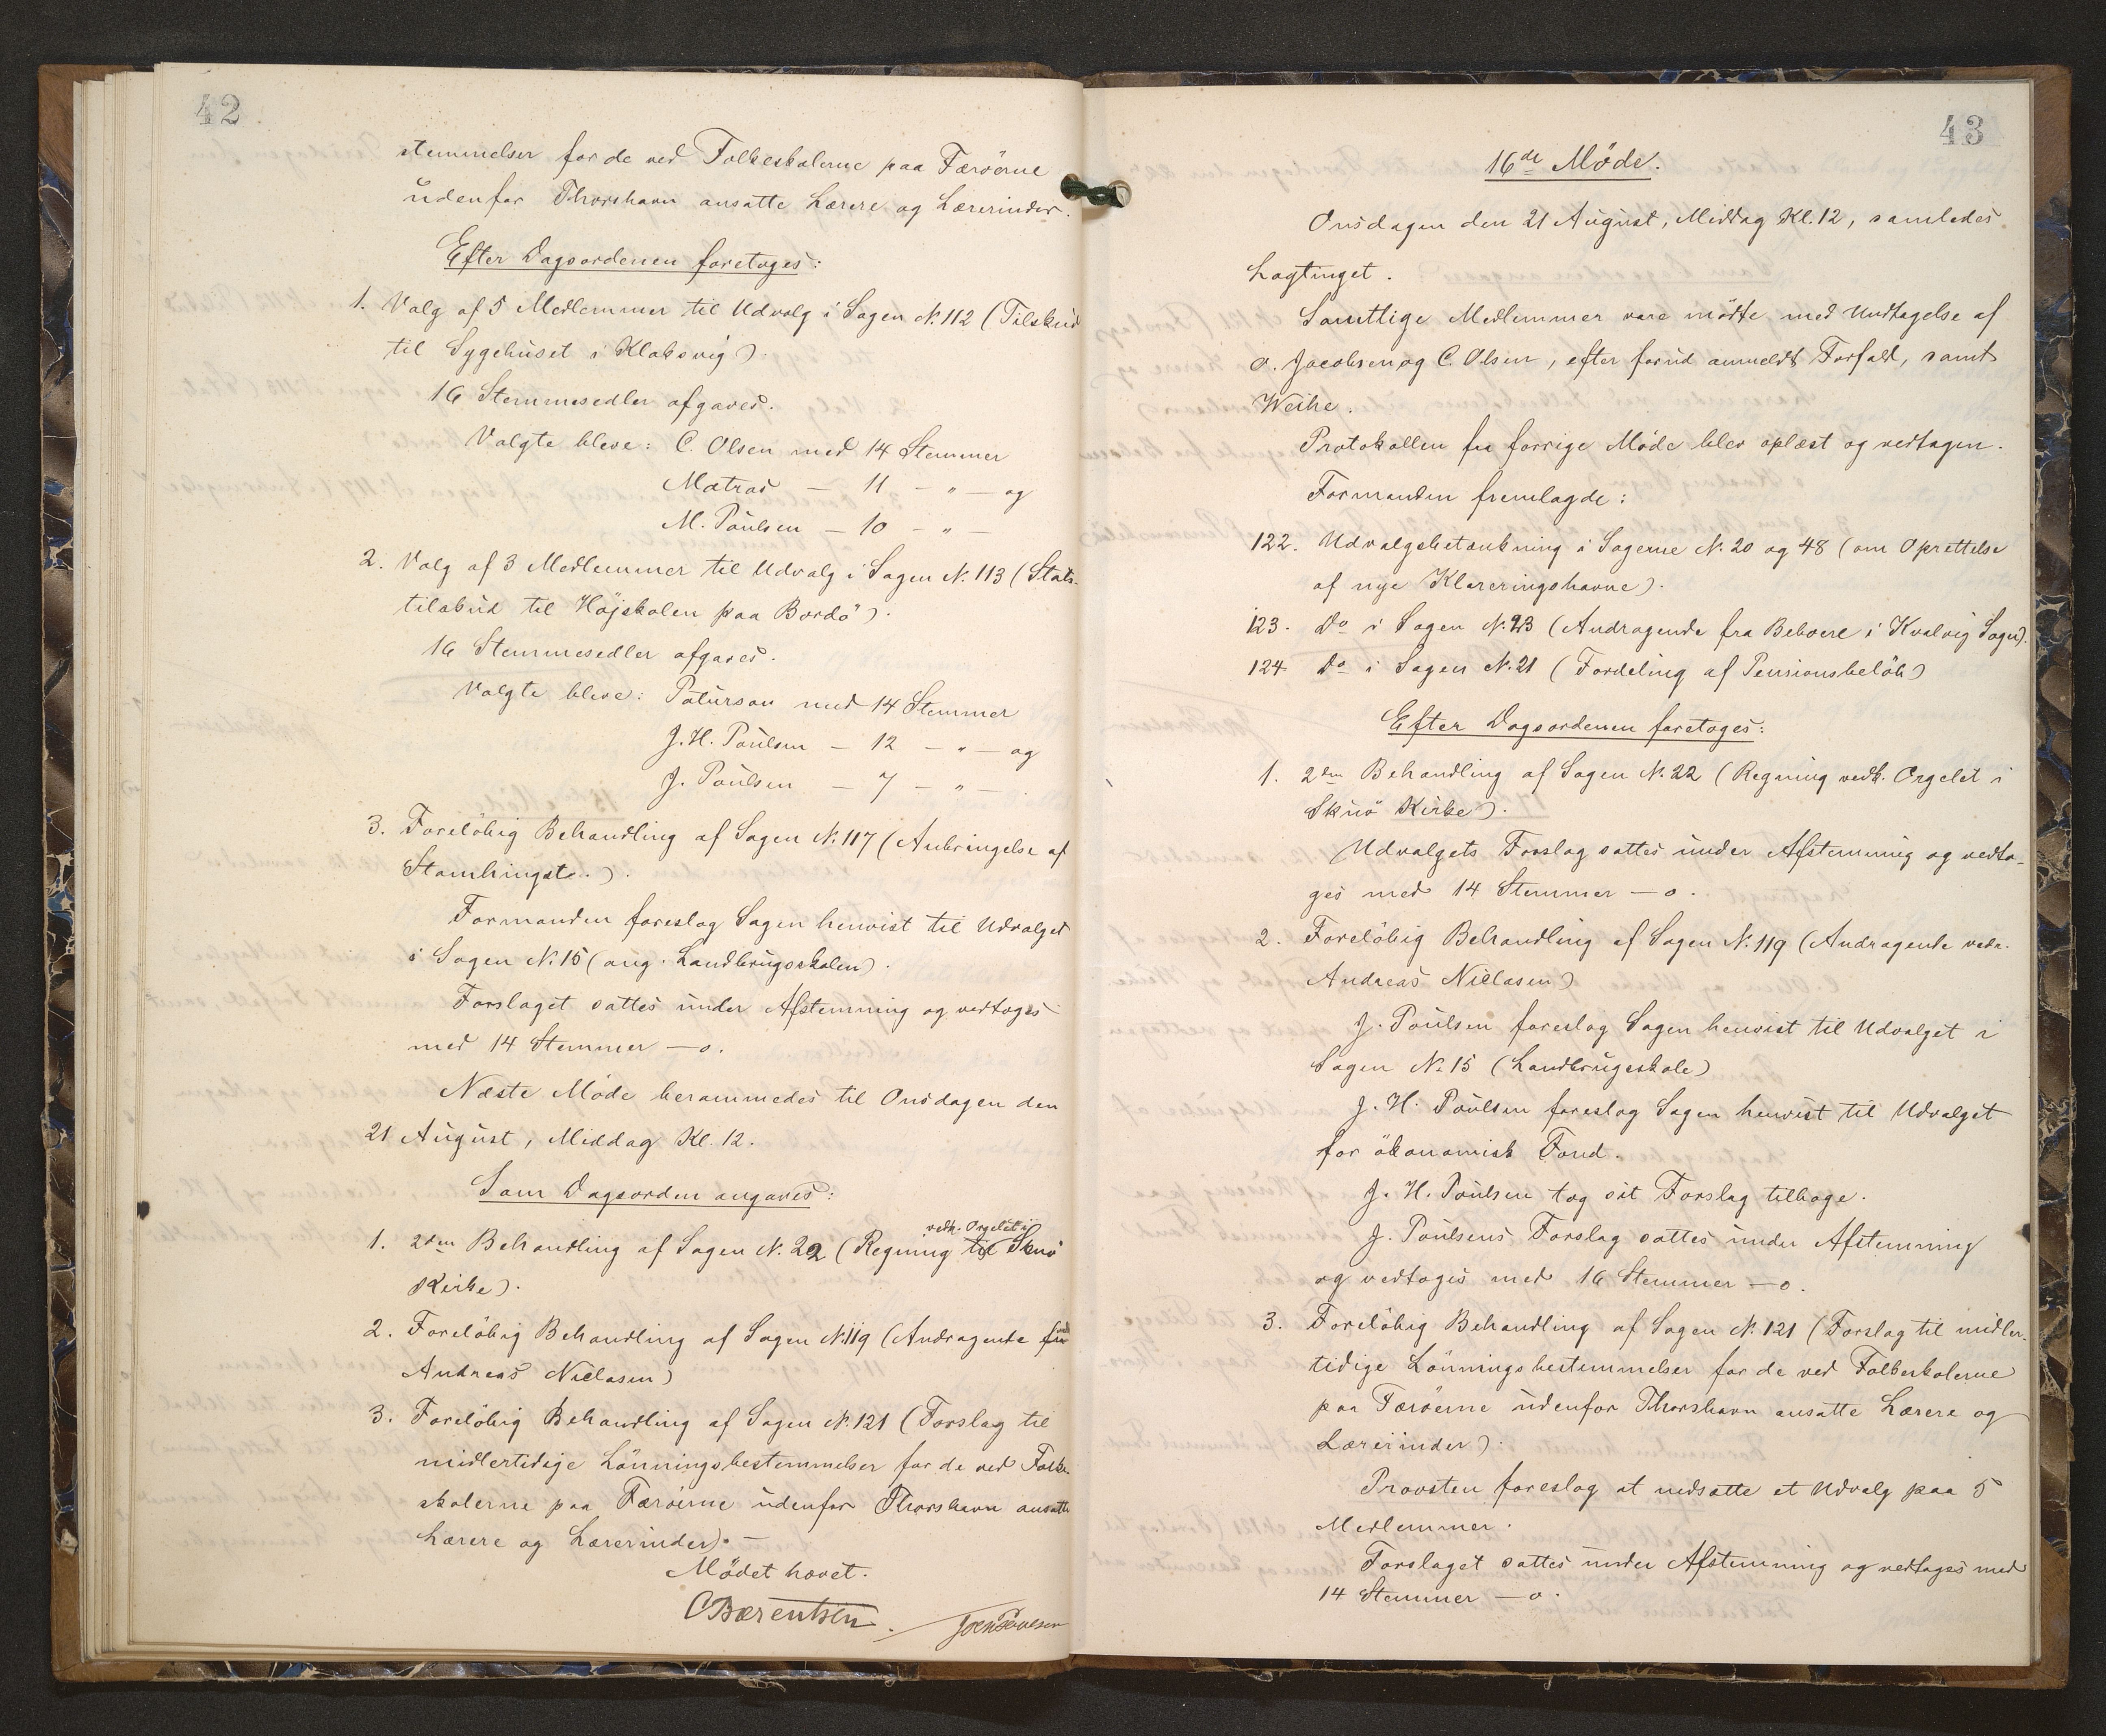 42
stemmelser for de ved Folkeskolerne paa Færöerne
udenfor Thorshavn ansatte Lærere og Lærerinder.
Efter Dagsordenen foretoges:
1. Valg af 5 Medlemmer til Udvalg i Sagen N. 112 (Tilskud
til Sygehuset i Klaksvig).
16 Stemmesedler afgaves.
Valgte bleve: C. Olsen med 14 Stemmer
Matras — 11 — " — og
M. Poulsen — 10 — " —
2. Valg af 3 Medlemmer til Udvalg i Sagen N. 113 (Stats-
tilskud til Höjskolen paa Bordö).
16 Stemmesedler afgaves.
Valgte bleve: Patursson med 14 Stemmer
J. H. Poulsen — 12 — " — og
J. Poulsen — 7 — " — .
3. Forelöbig Behandling af Sagen N. 117 (Anbringelse af
Stamhingste.).
Formanden foreslog Sagen henvist til Udvalget
i Sagen N. 15 (ang. Landbrugsskolen).
Forslaget sattes under Afstemning og vedtoges
med 14 Stemmer — o.
Næste Möde berammedes til Onsdagen den
21 August, Middag Kl. 12.
Som Dagsorden angaves:
vedk. Orgelet i
1. 2den Behandling af Sagen N. 22 (Regning til Skuö
Kirke).
2. Forelöbig Behandling af Sagen N. 119 (Andragende fra
Andreas Niclasen)
3. Forelöbig Behandling af Sagen N. 121 (Forslag til
midlertidige Lönningsbestemmelser for de ved Folke-
skolerne paa Færöerne udenfor Thorshavn ansatte
Lærere og Lærerinder). —
Mödet hævet.
CBærentsen. Joen Poulsen
43
16de Möde.
Onsdagen den 21 August, Middag Kl. 12, samledes
Lagtinget.
Samtlige Medlemmer vare mödte med Undtagelse af
O. Jacobsen og C. Olsen, efter forud anmeldt Forfald, samt
Weihe.
Protokollen fra forrige Möde blev oplæst og vedtagen.
Formanden fremlagde:
122. Udvalgsbetænkning i Sagerne N. 20 og 48 (om Oprettelse
af nye Klareringshavne).
123. Do i Sagen N. 23 (Andragende fra Beboere i Kvalvig Sogn).
124 Do i Sagen N. 21 (Fordeling af Pensionsbelöb)
Efter Dagsordenen foretoges:
1. 2den Behandling af Sagen N. 22 (Regning vedk. Orgelet i
Skuö Kirke).
Udvalgets Forslag sattes under Afstemning og vedto-
ges med 14 Stemmer — o.
2. Forelöbig Behandling af Sagen N. 119 (Andragende vedr.
Andreas Niclasen)
J. Poulsen foreslog Sagen henvist til Udvalget i
Sagen No 15 (Landbrugsskole)
J. H. Poulsen foreslog Sagen henvist til Udvalget
for ökonomisk Fond.
J. H. Poulsen tog sit Forslag tilbage.
J. Poulsens Forslag sattes under Afstemning
og vedtoges med 16 Stemmer — o.
3. Forelöbig Behandling af Sagen N. 121 (Forslag til midler-
tidige Lönningsbestemmelser for de ved Folkeskolerne
paa Færöerne udenfor Thorshavn ansatte Lærere og
Lærerinder).
Provsten foreslog at nedsætte et Udvalg paa 5
Medlemmer.
Forslaget sattes under Afstemning og vedtoges med
14 Stemmer — o.